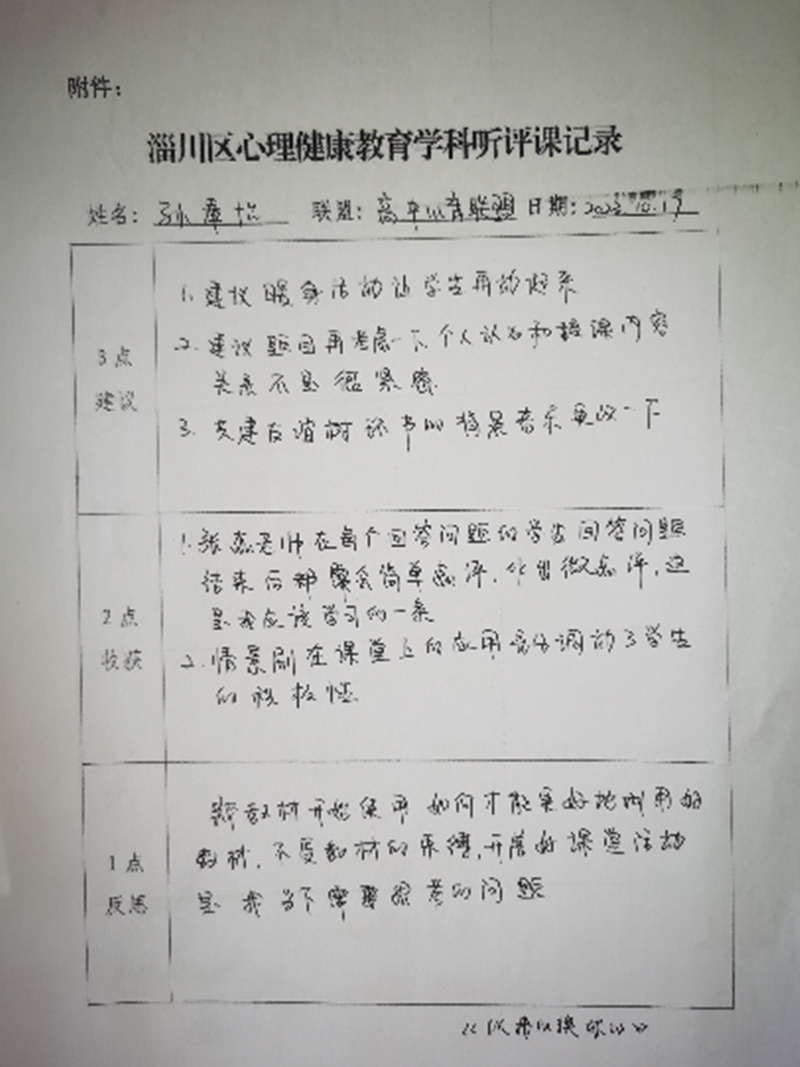 附件：
淄川区心理健康教育学科听评课记录
姓名：孙 联盟：高中心育联盟 日期：2023.10.19
3点
建议
1. 建议暖身活动让学生再动起来
2. 建议题目再考虑一下个人认为和授课内容
关系不是很紧密
3. 建议 树环节的背景音乐更改一下
2点
收获
1. 张 老师在每个回答问题的学生回答问题
结束后都会简单点评，这
是我应该学习的一条
2. 情景剧在课堂上的应用 调动了学生
的积极性
1点
反思
新教材开始使用 如何才能更好地利用好
教材，不受教材的束缚，开展好课堂活动
是我当下需要思考的问题